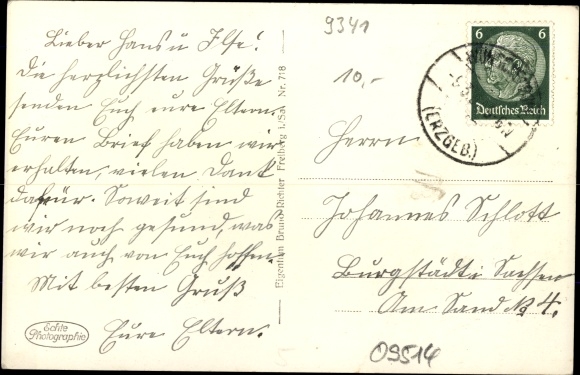 Lieber Hans u Ilse!
Die herzlichsten Grüße
senden Euch eure Eltern.
Euren Brief haben wir
erhalten, vielen Dank
dafür. Soweit sind
wir noch gesund, was
wir auch von Euch hoffen.
Mit besten Gruß
Eure Eltern.
Echte
Photographie
Eigentum Bruno Richter Freiberg i./Sa. Nr. 718
9341
10,-
6 6
Deutsches Reich
(ERZGEB.)
Herrn
Johannes Schlott
Burgstädt i Sachsen
Am Sand № 4.
09514